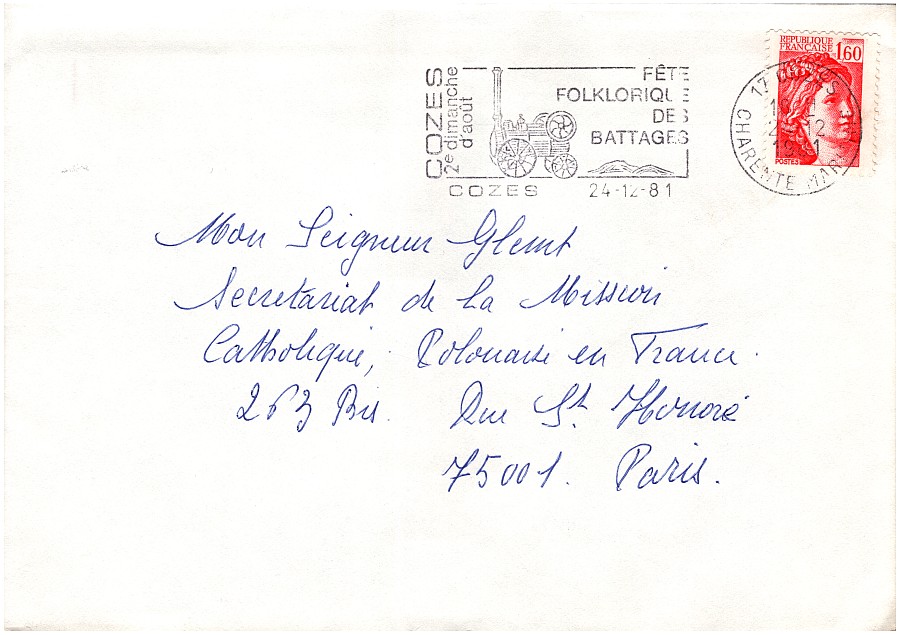 COZES
2e dimanche
d'août
FÊTE
FOLKLORIQUE
DES
BATTAGES
COZES 24-12-81
REPUBLIQUE
FRANÇAISE 1,60
POSTES
17 COZES
CHARENTE MAR
Mon Seigneur Glemt
Secretariat de la Mission
Catholique, Polonaise en France.
263 Bis. Rue St. Honoré
75001. Paris.